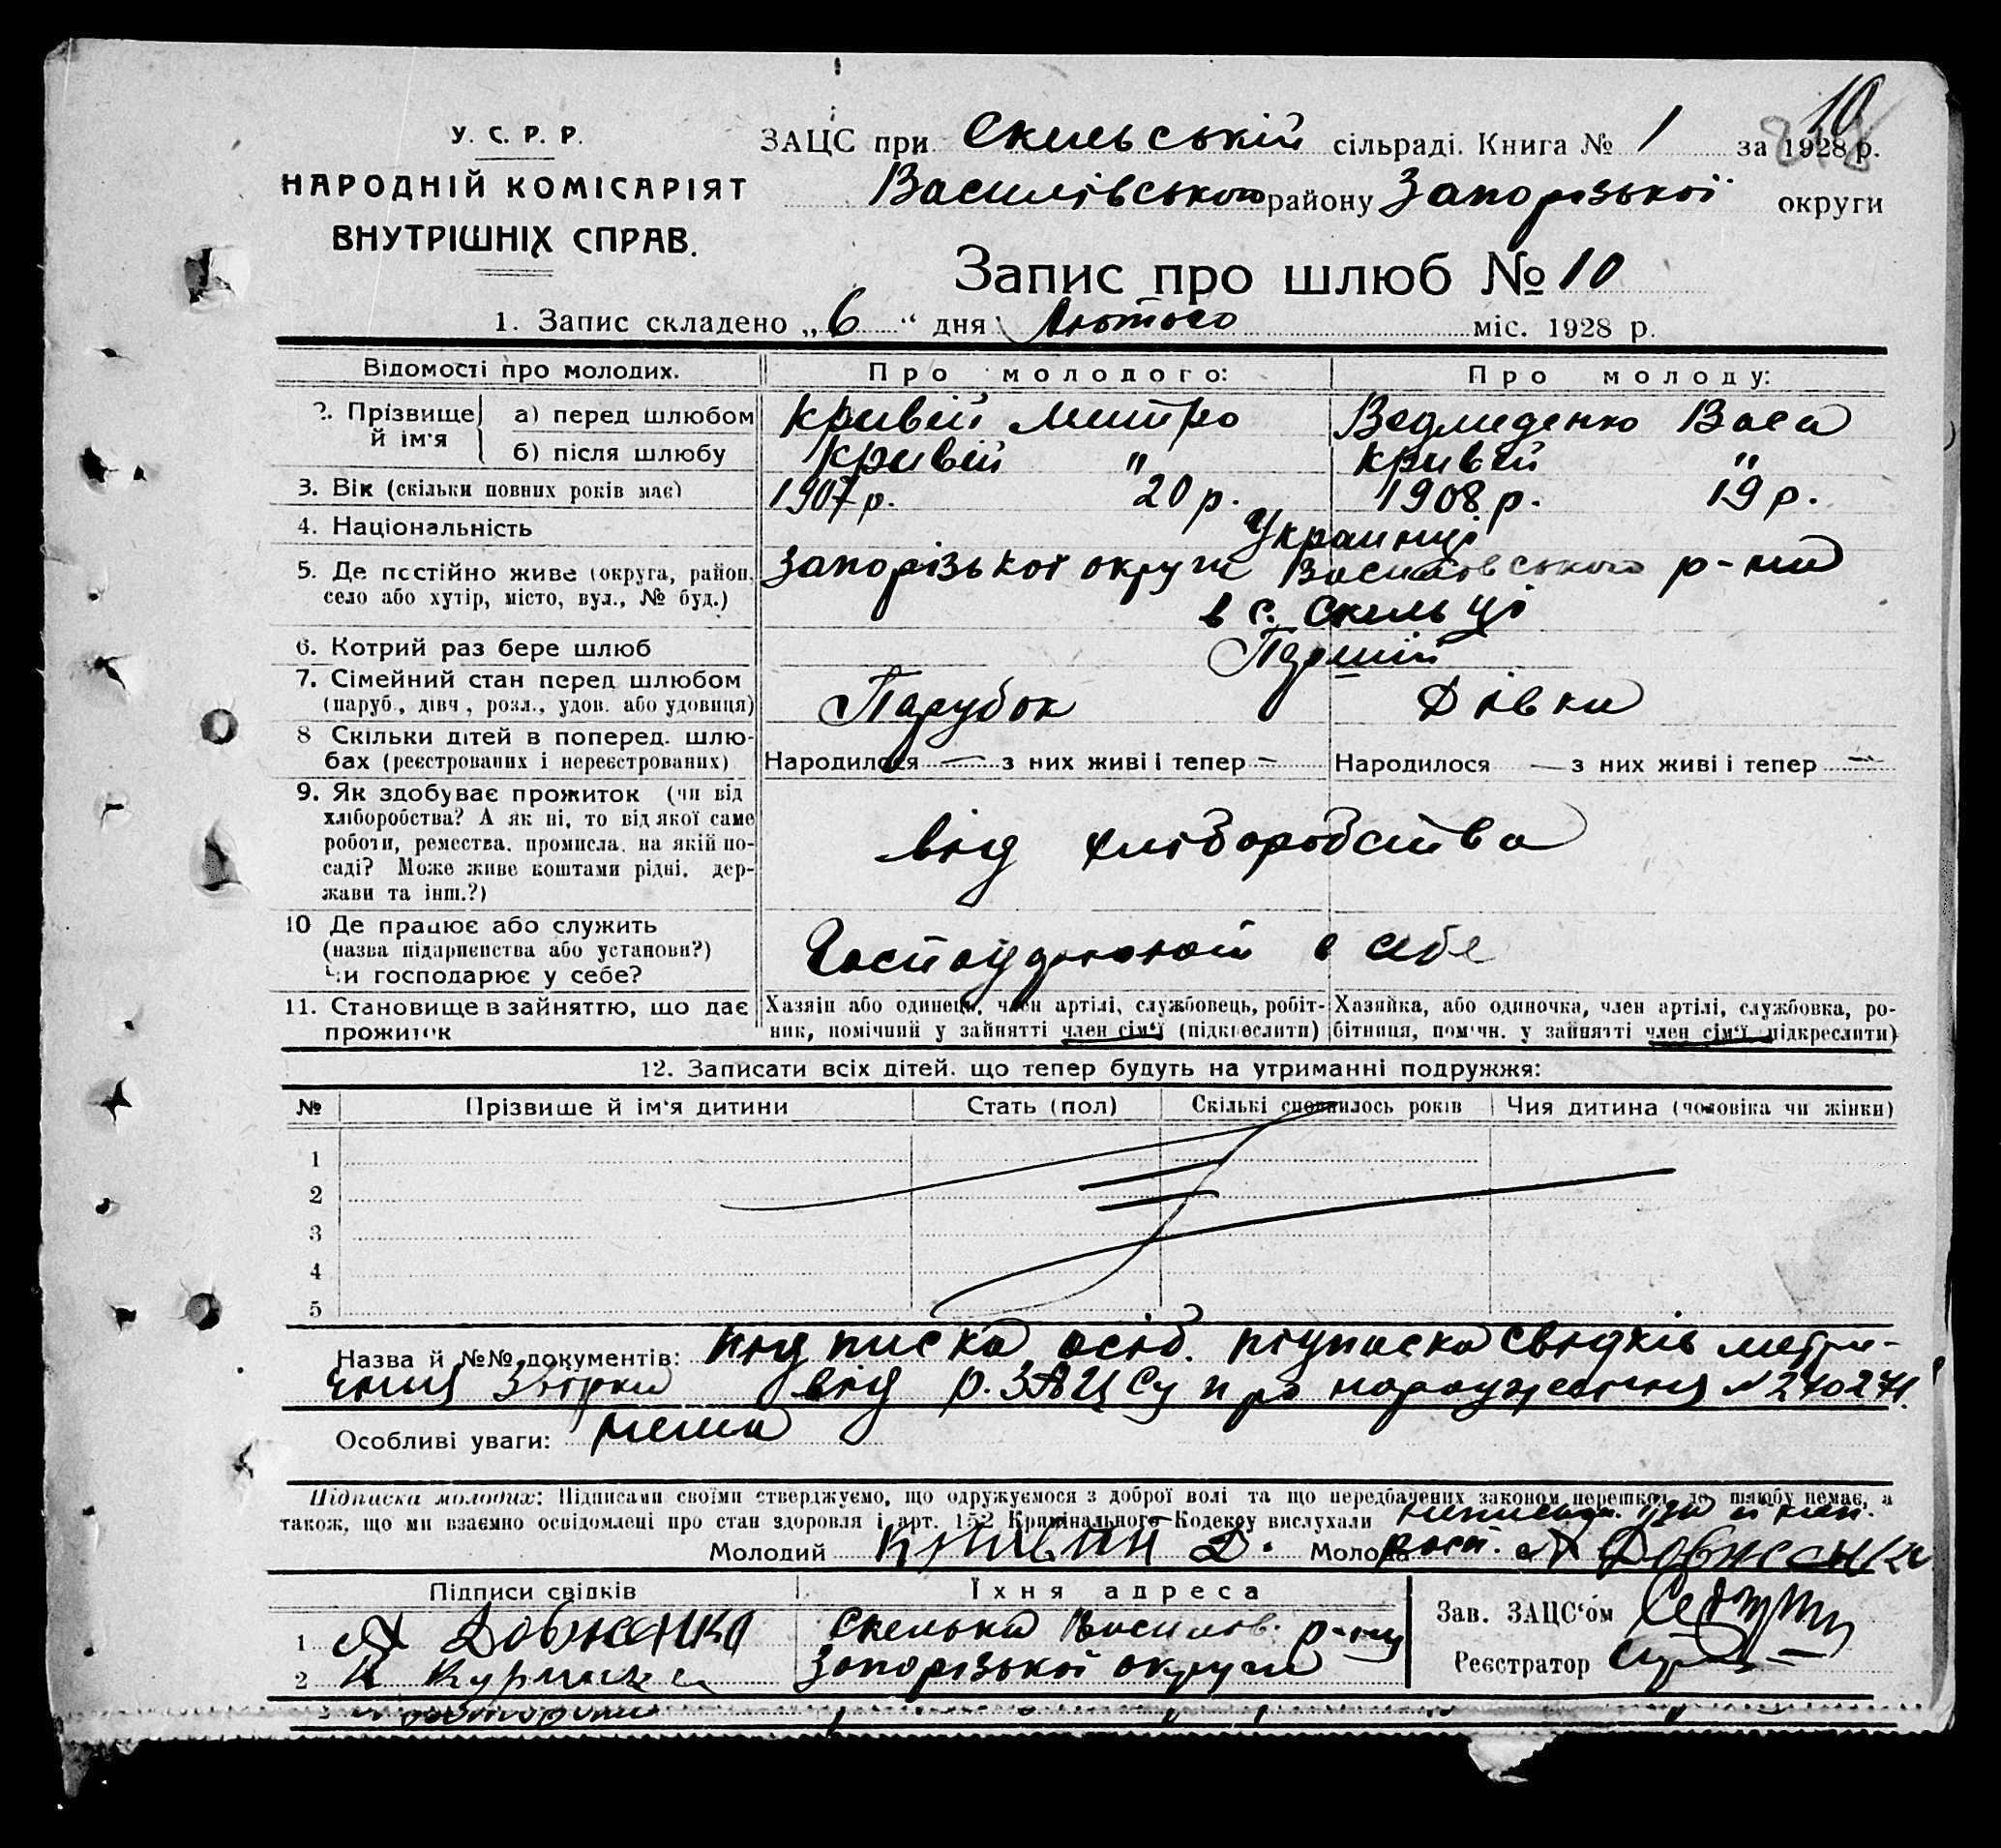 10
У. С. Р. Р.
НАРОДНІЙ КОМІСАРІЯТ
ВНУТРІШНІХ СПРАВ.
ЗАЦС при Скельській сільраді. Книга № 1 за 1928 р.
Василівського району Запорізької округи
Запис про шлюб № 10
1. Запис складено „6“ дня Лютого міс. 1928 р.
Відомості про молодих. Про молодого: Про молоду:
2. Прізвище й ім'я а) перед шлюбом Кривій Митро Ведмеденко Васа
б) після шлюбу Кривій " Кривій "
3. Вік (скільки повних років має) 1907 р. 20 р. 1908 р. 19 р.
4. Національність Украинці
5. Де постійно живе (округа, район, село або хутір, місто, вул., № буд.) Запорізької округи Василовського р-на
в с. Скельці
6. Котрий раз бере шлюб Перший
7. Сімейний стан перед шлюбом (паруб., дівч., розл., удов. або удовиця) Парубок Дівка
8 Скільки дітей в поперед. шлюбах (реєстрованих і нереєстрованих) Народилося — з них живі і тепер — Народилося — з них живі і тепер —
9. Як здобуває прожиток (чи від
хліборобства? А як ні, то від якої саме
роботи, ремества, промисла, на якій по-
саді? Може живе коштами рідні, дер-
жави та інш.?)
від хліборобства
10 Де працює або служить
(назва підприємства або установи?)
Чи господарює у себе?
в себе
11. Становище в зайняттю, що дає
прожиток
Хазяїн або одинець, член артілі, службовець, робіт-
ник, помічний у зайнятті член сім'ї (підкреслити)
Хазяйка, або одиночка, член артілі, службовка, ро-
бітниця, помічн. у зайнятті член сім'ї підкреслити)
12. Записати всіх дітей, що тепер будуть на утриманні подружжя:
№ Прізвище й ім'я дитини Стать (пол) Скількі сповнилось років Чия дитина (чоловіка чи жінки)
1
2
3
4
5
Назва й №№ документів: підписка осіб. підписка свидків метри-
від р. ЗАЦСу про народження № 270271
Особливі уваги: нема
Підписка молодих: Підписами своїми стверджуємо, що одружуємося з доброї волі та що передбачених законом перешкод до шлюбу немає, а
також, що ми взаємно освідомлені про стан здоровля і арт. 152 Кримінального Кодексу вислухали
Молодий Кривий Д. Молода А Довженко
Підписи свідків Їхня адреса
1 А Довженко Скелька Василов. р-ну
2 Запорізької округи
Зав. ЗАЦС'ом
Реєстратор